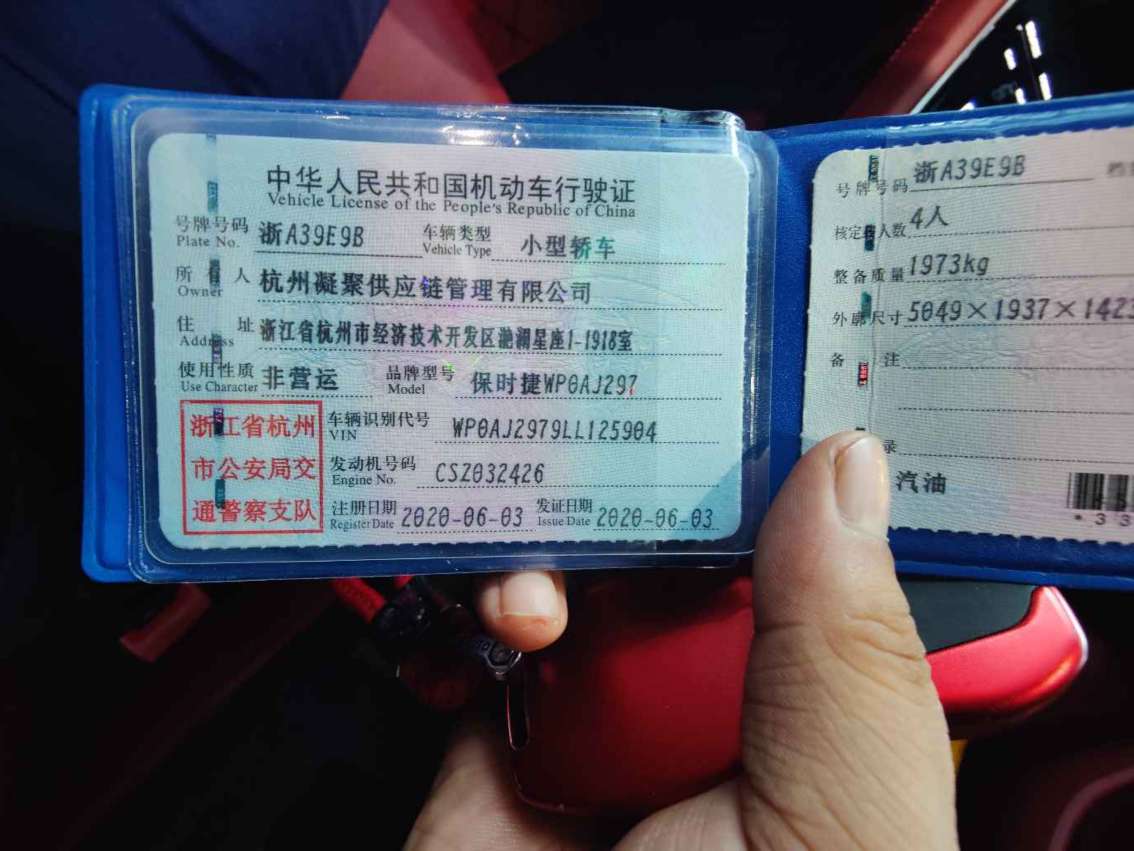 中华人民共和国机动车行驶证
Vehicle License of the People's Republic of China
号牌号码 浙A39E9B 车辆类型 小型轿车
Plate No. Vehicle Type
所有人 杭州凝聚供应链管理有限公司
Owner
住址 浙江省杭州市经济技术开发区滟澜星座1-1918室
Address
使用性质 非营运 品牌型号 保时捷WP0AJ297
Use Character Model
浙江省杭州
市公安局交
通警察支队
车辆识别代号 WP0AJ2979LL125904
VIN
发动机号码 CSZ032426
Engine No.
注册日期 2020-06-03 发证日期 2020-06-03
Register Date Issue Date
号牌号码 浙A39E9B
核定载人数 4人
整备质量 1973kg
外廓尺寸 5049×1937×1423
备注
录
汽油
*33